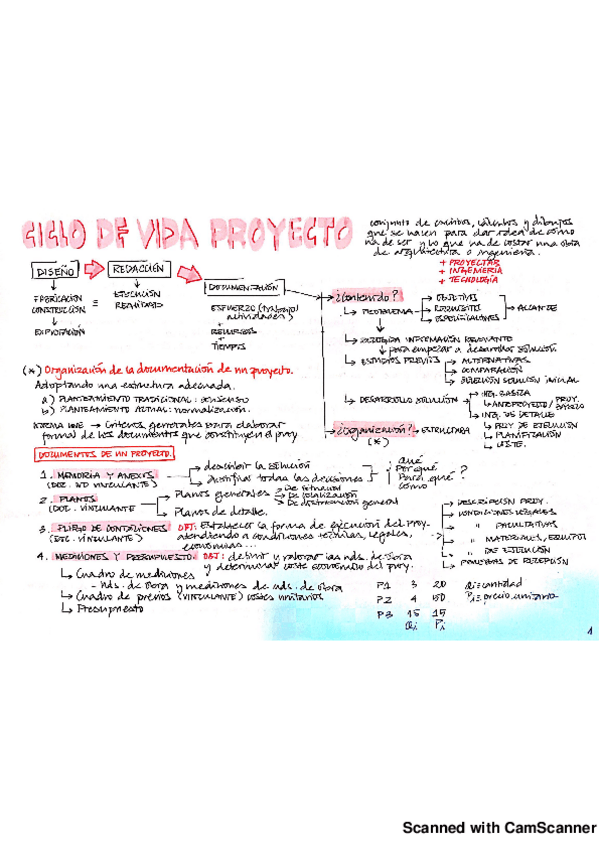 CICLO DE VIDA PROYECTO
conjunto de escritos, cálculos y dibujos
que se hacen para dar idea de cómo
ha de ser y lo que ha de costar una obra
de arquitectura o ingeniería.
+ PROYECTAR
+ INGENIERÍA
+ TECNOLOGÍA
DISEÑO → REDACCIÓN → DOCUMENTACIÓN
FABRICACIÓN
CONSTRUCCIÓN = EJECUCIÓN
↓
EXPLOTACIÓN
ESFUERZO (trabajo/
actividades)
+
RECURSOS
+
TIEMPOS
→ ¿Contenido?
↳ PROBLEMA → OBJETIVOS
→ REQUISITOS → ALCANCE
→ ESPECIFICACIONES
→ RECOGIDA INFORMACIÓN
↳ para empezar a desarrollar solución
→ ESTUDIOS PREVIOS → ALTERNATIVAS
→ COMPARACIÓN
→ SELECCIÓN SOLUCIÓN INICIAL
→ DESARROLLO SOLUCIÓN → ING. BÁSICA
↳ ANTEPROYECTO / PROY. BÁSICO
→ ING. DE DETALLE
↳ PROY DE EJECUCIÓN
↳ PLANIFICACIÓN
↳ COSTE.
→ ¿Organización? → ESTRUCTURA
(*)
(*) Organización de la documentación de un proyecto.
Adoptando una estructura adecuada.
a) PLANTEAMIENTO TRADICIONAL: consenso
b) PLANTEAMIENTO ACTUAL: normalización.
NORMA UNE → Criterios generales para elaborar
formal de los documentos que constituyen el proy
DOCUMENTOS DE UN PROYECTO.
1. MEMORIA Y ANEXOS → describir la solución
(DOC. NO VINCULANTE) → Justificar todas las decisiones
qué
Por qué ?
Para qué
cómo
2. PLANOS → Planos generales → De situación
(DOC. VINCULANTE) → De localización
→ De distribución general
Planos de detalle.
3. PLIEGO DE CONDICIONES OBJ: Establecer la forma de ejecución del proy.
(DOC. VINCULANTE) atendiendo a condiciones técnicas, legales,
económicas...
→ DESCRIPCIÓN PROY.
→ CONDICIONES LEGALES
→ " FACULTATIVAS
→ " MATERIALES, EQUIPOS
→ " DE EJECUCIÓN
→ PRUEBAS DE RECEPCIÓN
4. MEDICIONES Y PRESUPUESTO OBJ: definir y valorar las uds. de obra
y determinar coste económico del proy.
↳ Cuadro de mediciones
- uds. de obra y mediciones de uds. de obra
↳ Cuadro de precios (VINCULANTE) costes unitarios
↳ Presupuesto
P1 3 20 Qi = cantidad
P2 4 50 Pi = precio unitario
P3 15 15
Qi Pi
1
Scanned with CamScanner